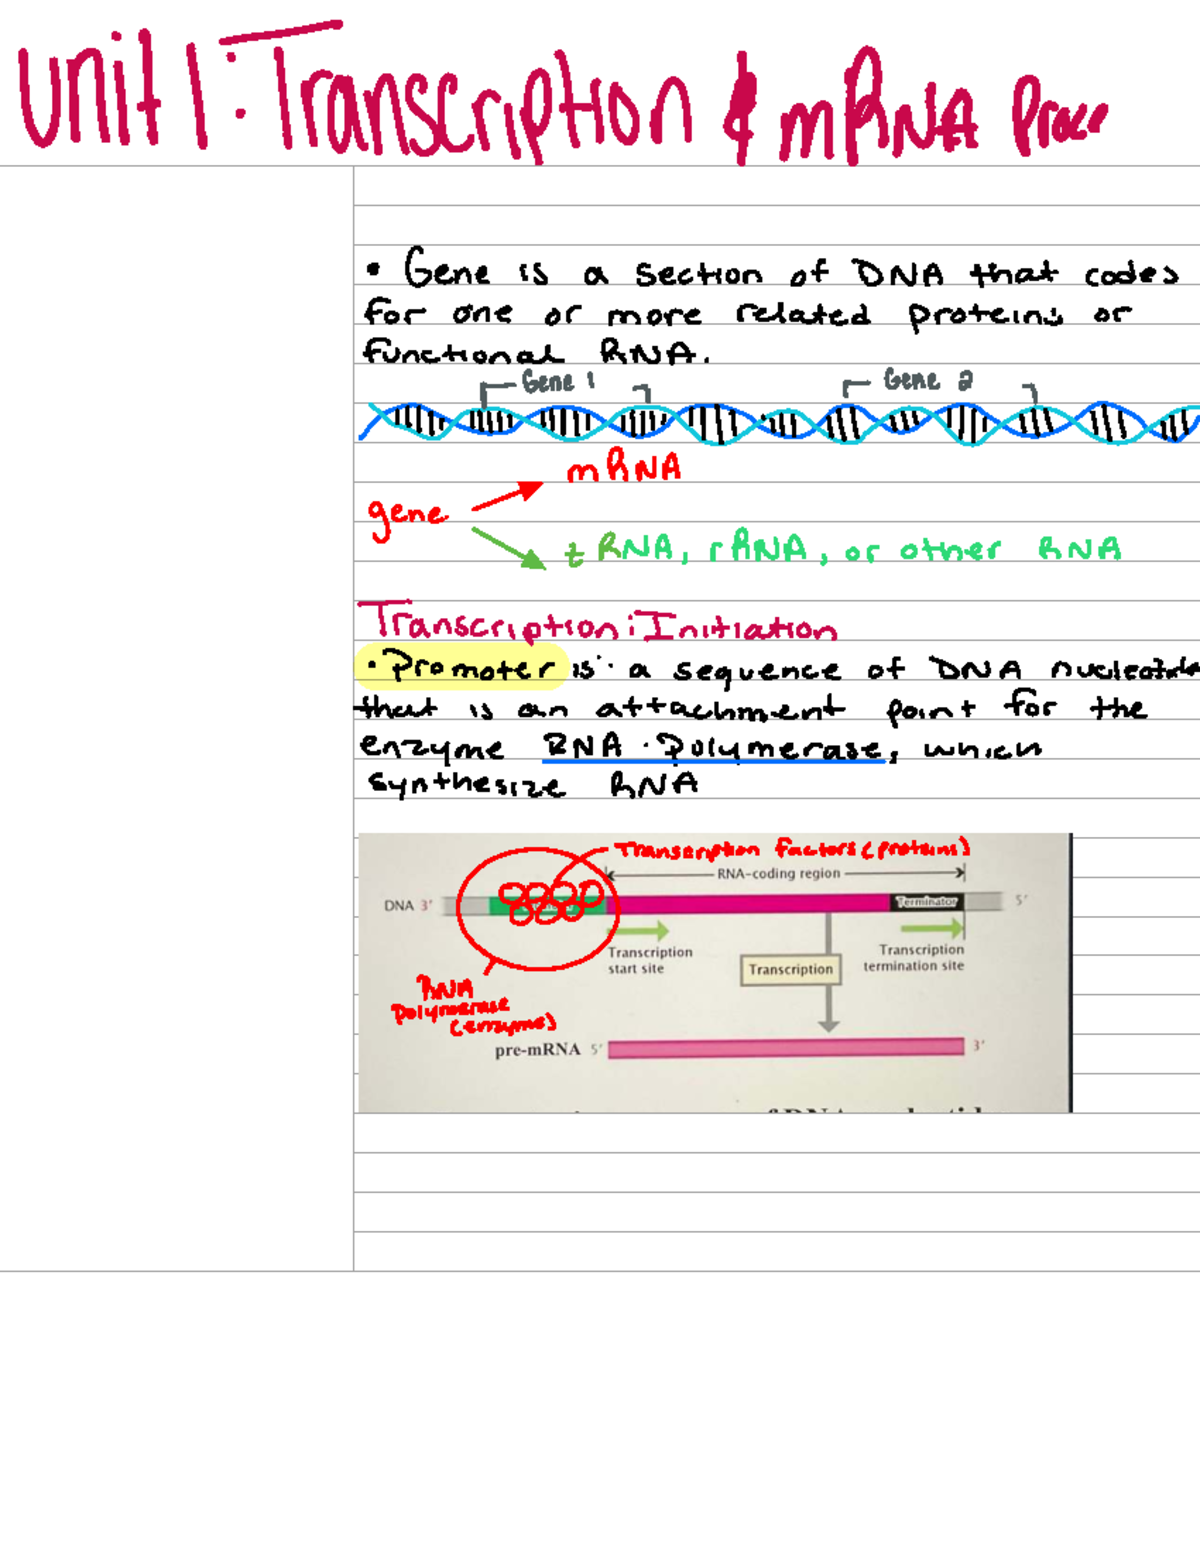 Unit 1: Transcription & mRNA Proce
• Gene is a section of DNA that codes
for one or more related proteins or
functional RNA.
Gene 1 Gene 2
mRNA
gene
tRNA, rRNA, or other RNA
Transcription: Initiation
• Promoter is a sequence of DNA
that is an attachment point for the
enzyme RNA Polymerase, which
synthesize RNA
Transcription factors (proteins)
RNA-coding region
DNA 3' Terminator 5'
Transcription
start site
Transcription
Transcription
termination site
RNA
Polymerase
(enzyme)
pre-mRNA 5' 3'